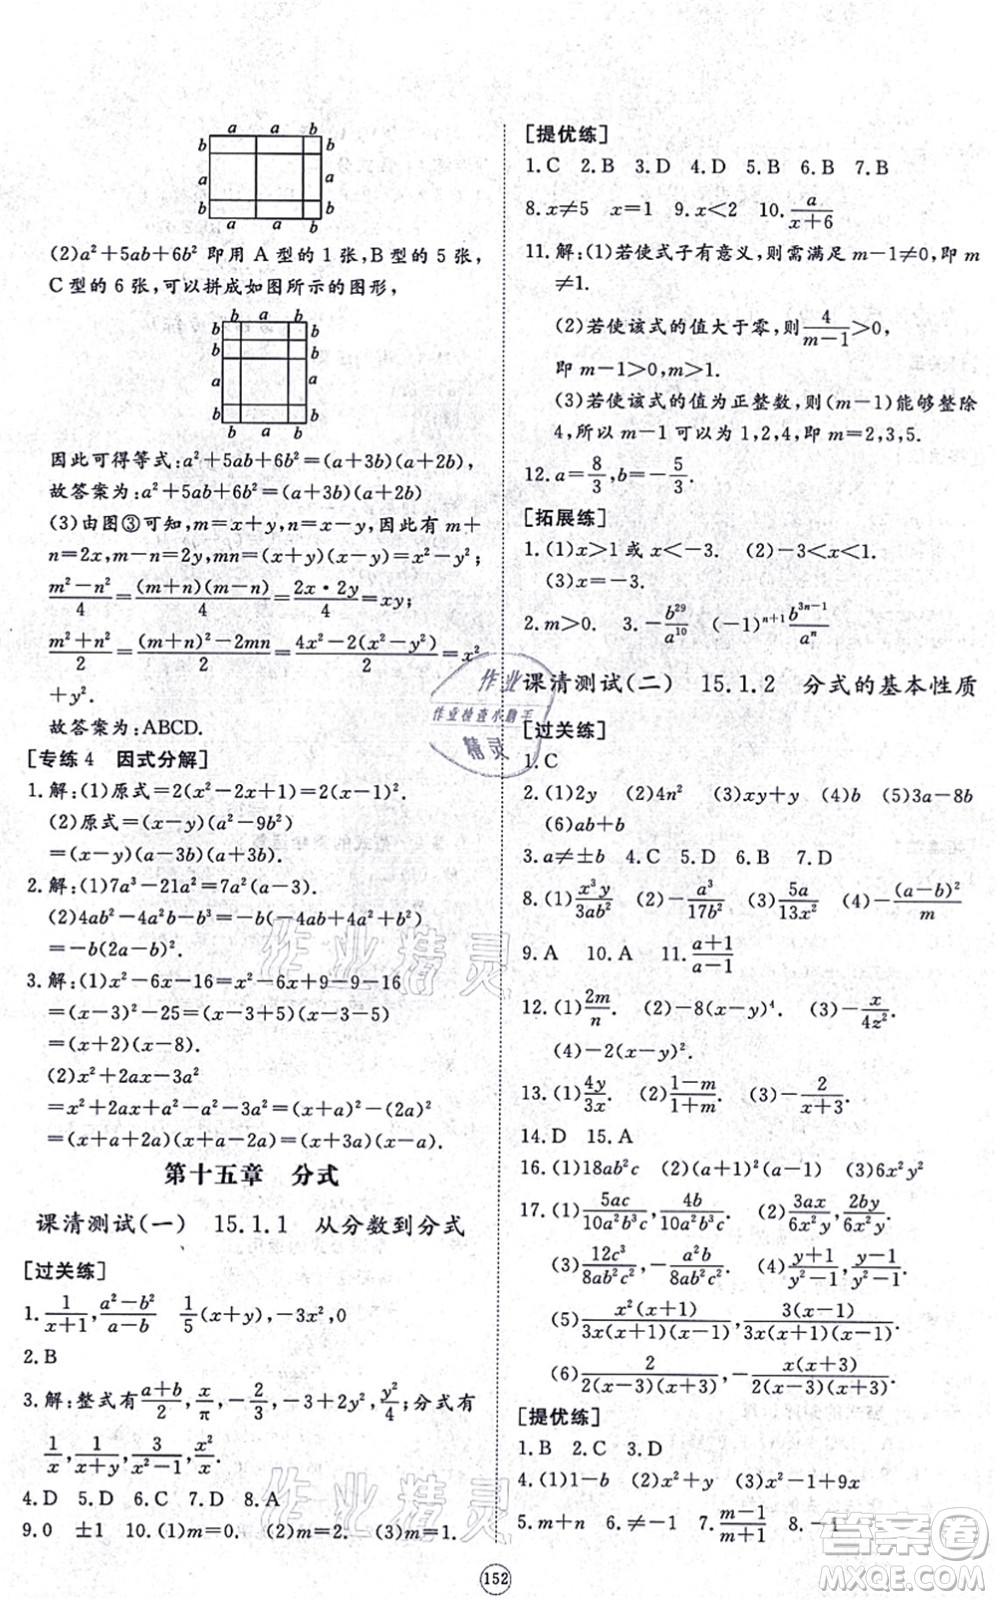 a a b
b b
a a
b b
a a b
(2)a²+5ab+6b² 即用 A 型的 1 张,B 型的 5 张,
C 型的 6 张,可以拼成如图所示的图形,
b a b
b b
b
a a
b b
b a b
因此可得等式:a²+5ab+6b²=(a+3b)(a+2b),
故答案为:a²+5ab+6b²=(a+3b)(a+2b)
(3)由图③可知,m=x+y,n=x-y,因此有 m+
n=2x,m-n=2y,mn=(x+y)(x-y)=x²-y²;
(m²-n²)/4=(m+n)(m-n)/4=(2x·2y)/4=xy;
(m²+n²)/2=((m+n)²-2mn)/2=(4x²-2(x²-y²))/2=x²
+y².
故答案为:ABCD.
[专练 4 因式分解]
1.解:(1)原式=2(x²-2x+1)=2(x-1)².
(2)原式=(x-y)(a²-9b²)
=(x-y)(a+3b)(a-3b).
2.解:(1)7a³-21a²=7a²(a-3).
(2)4ab²-4a²b-b³=-b(-4ab+4a²+b²)
=-b(2a-b)².
3.解:(1)x²-6x-16=x²-6x+9-9-16
=(x-3)²-25=(x-3+5)(x-3-5)
=(x+2)(x-8).
(2)x²+2ax-3a²
=x²+2ax+a²-a²-3a²=(x+a)²-4a²
=(x+a+2a)(x+a-2a)=(x+3a)(x-a).
第十五章 分式
课清测试(一) 15.1.1 从分数到分式
[过关练]
1. 1/(x+1),(a²-b²)/(a-b) 1/5(x+y),-3x²,0
2.B
3.解:整式有(a+b)/2,x/π,-2/3,-3+2x,y²/4;分式有
1/x,1/(x+y),3/(x²-1),x²/x.
4.D 5.D 6.C 7.D 8.A
9.0 ±1 10.(1)m=0. (2)m=2. (3)m=1.
[提优练]
1.C 2.B 3.D 4.D 5.B 6.B 7.B
8.x≠5 x=1 9.x<2 10.a/(x+6)
11.解:(1)若使式子有意义,则需 m-1≠0,即 m
≠1.
(2)若使该式的值大于零,则4/(m-1)>0,
即 m-1>0,m>1.
(3)若使该式的值为正整数,则(m-1)能够整除
4,所以 m-1 可以为 1,2,4,即 m=2,3,5.
12.a=8/3,b=-5/3.
[拓展练]
1.(1)x>1 或 x<-3. (2)-3<x<1.
(3)x=-3.
2.m>0. 3.-b²⁹/a¹⁰ (-1)ⁿ⁺¹b³ⁿ⁻¹/aⁿ
课清测试(二) 15.1.2 分式的基本性质
[过关练]
1.C
2.(1)2y (2)4n² (3)xy+y (4)b (5)3a-8b
(6)ab+b
3.a≠±b 4.B 5.A 6.B 7.D
8.(1)x³y/3ab² (2)-a³/17b² (3)5a/13x² (4)-(a-b)²/m
9.A 10.A 11.(a+1)/(a-1)
12.(1)2m/n. (2)-(x-y)⁴. (3)-x/4z².
(4)-2(x-y)².
13.(1)4y/3x. (2)(1-m)/(1+m). (3)-2/(x+3).
14.D 15.A
16.(1)18ab²c (2)(a+1)²(a-1)² (3)6x²yz
17.(1)5ac/10a²b³c,4b/10a²b³c. (2)3ax/6x²y,2by/6x²y.
(3)12c³/8ab²c²,-a²b/8ab²c². (4)(y+1)/(y²-1),1/(y²-1).
(5)x²(x+1)/3x(x+1)(x-1),3(x-1)/3x(x+1)(x-1).
(6)2/2(x+3)(x-3),-x(x+3)/2(x+3)(x-3).
[提优练]
1.B 2.C 3.D
4.(1)1-b (2)x²+y (3)x²-1+9x
5.m+n 6.≠-1 7.(m-1)/(m+1) 8.-1
152
作业
作业检查小助手
精灵
作业精灵
作业精灵
答案圈
MXQE.COM